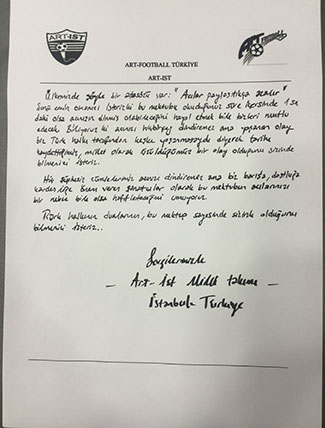 ART-IST
ART
ART-FOOTBALL TÜRKİYE
ART-IST
Ülkemizde şöyle bir atasözü var: "Acılar paylaştıkça azalır"
Ama emin olmanızı isterizki bu mektubu okuduğunuz süre içerisinde 1 sn
dahi olsa acınızın dinmiş olabileceğini hayal etmek bile bizleri mutlu
edecek. Biliyoruz ki acınızı hiçbirşey dindiremez ama yaşanan olay
biz Türk halkı tarafından keşke yaşanmasaydı diyerek tarihe
kaydettiğimiz, millet olarak üzüldüğümüz bir olay olduğunu sizinde
bilmenizi isteriz.
Hiç şüphesiz cümlelerimiz acınızı dindiremez ama biz barışa, dostluğa
kardeşliğe önem veren sanatçılar olarak bu mektubun acılarınızı
bir nebze bile olsa hafifleteceğini umuyoruz.
Türk halkının dualarının, bu mektup sayesinde sizinle olduğunu
bilmenizi isteriz..
Saygılarımızla
- Art-ist Milli takımı -
İstanbul Türkiye